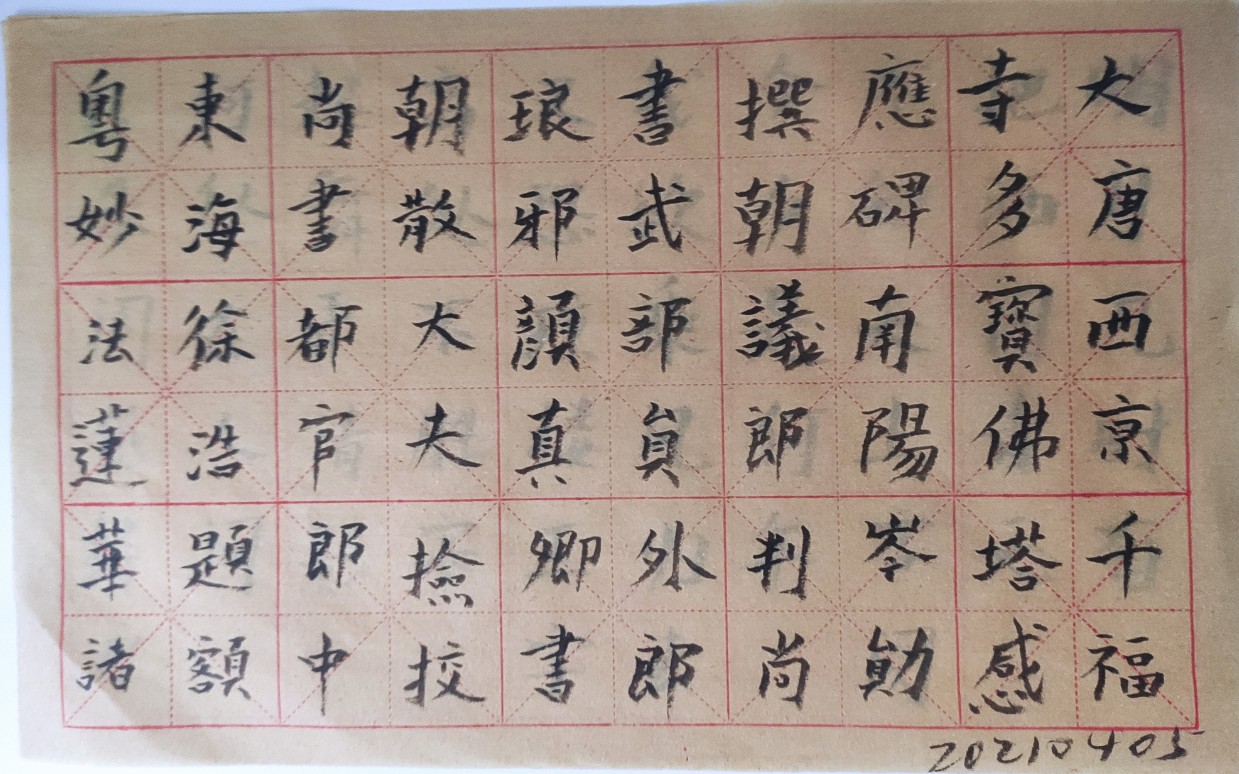 大唐西京千福
寺多寶佛塔感
應碑南陽岑勛
撰朝議郎判尚
書武部員外郎
琅邪顏真卿書
朝散大夫撿挍
尚書都官郎中
東海徐浩題額
粵妙法蓮華諸
20210405